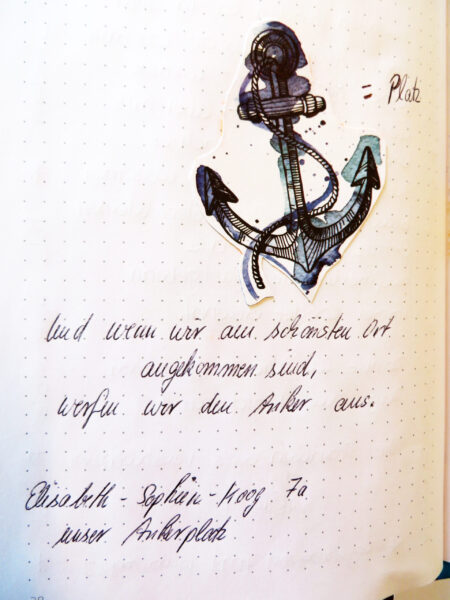 = Platz
Und wenn wir am schönsten Ort
angekommen sind,
werfen wir den Anker aus.
Elisabeth - Sophien - Koog 7a
unser Ankerplatz